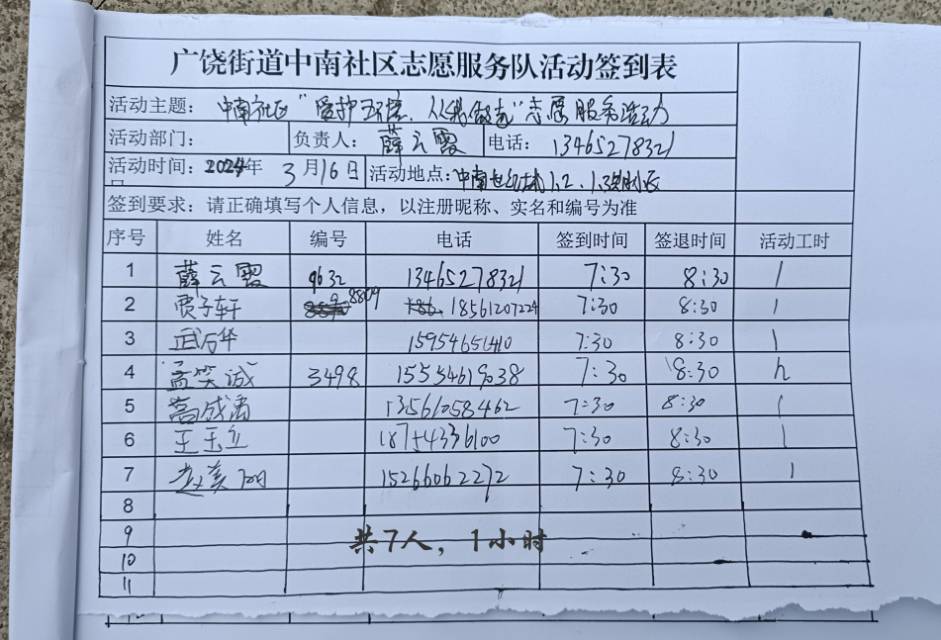 广饶街道中南社区志愿服务队活动签到表
活动主题： 中南社区"爱护环境、从我做起"志愿服务活动
活动部门： 负责人： 薛云霞 电话： 13465278321
活动时间：2024年 3月16日 活动地点：中南世纪城1.2、1.3期
签到要求：请正确填写个人信息，以注册昵称、实名和编号为准
序号 姓名 编号 电话 签到时间 签退时间 活动工时
1 薛云霞 9632 13465278321 7:30 8:30 1
2 贾子轩 8809 18561207224 7:30 8:30 1
3 武万华 15954651410 7:30 8:30 1
4 孟笑诚 3498 15554619038 7:30 8:30 h
5 高成涌 13561058462 7:30 8:30 1
6 王玉立 18754336100 7:30 8:30 1
7 赵美丽 15266062272 7:30 8:30 1
8
9 共7人，1小时
10
11